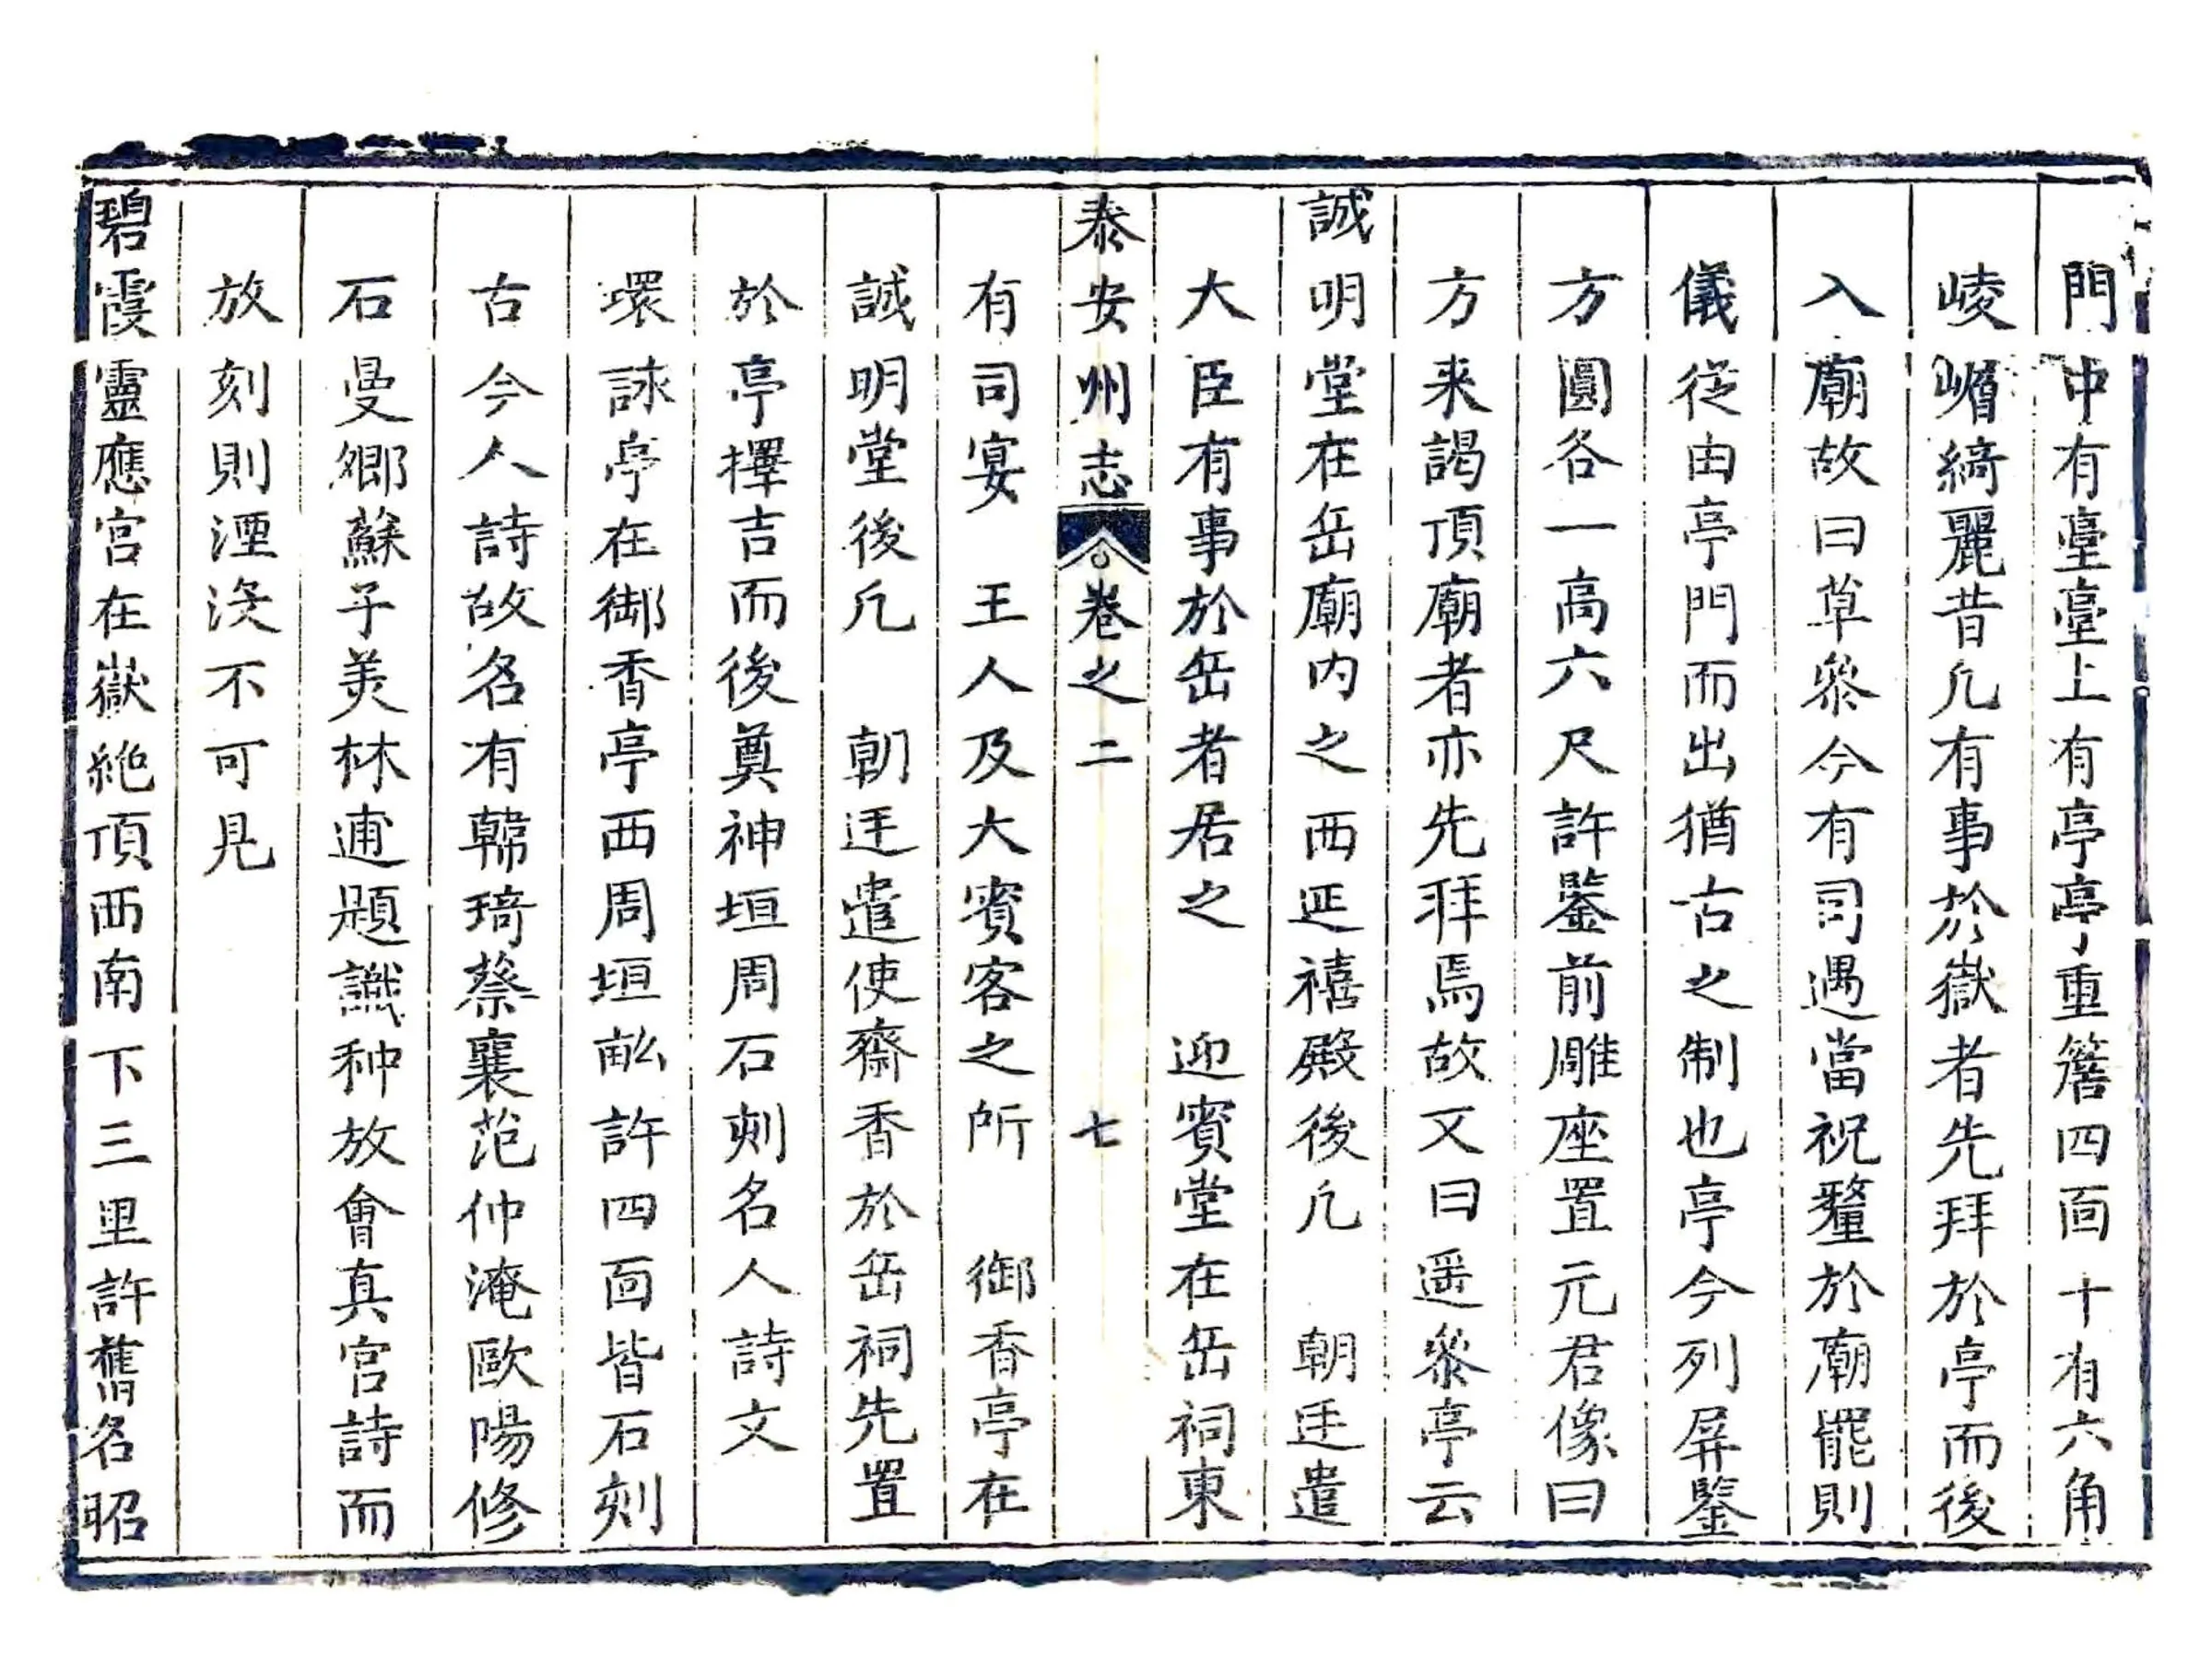 門中有臺臺上有亭亭重簷四面十有六角
崚嵋綺麗昔凡有事於嶽者先拜於亭而後
入廟故曰草叅今有司遇當祝釐於廟罷則
儀從由亭門而出猶古之制也亭今列屏鑒
方圓各一高六尺許鑒前雕座置元君像曰
方来謁頂廟者亦先拜焉故又曰遥叅亭云
誠明堂在岳廟内之西延禧殿後凡　朝廷遣
大臣有事於岳者居之　迎賓堂在岳祠東
泰安州志　卷之二　七
有司宴　王人及大賓客之所　御香亭在
誠明堂後凡　朝廷遣使齋香於岳祠先置
於亭擇吉而後奠神垣周石刻名人詩文
環詠亭在御香亭西周垣畝許四面皆石刻
古今人詩故名有韓琦蔡襄范仲淹歐陽修
石曼卿蘇子美林逋題識种放會真宫詩而
放刻則湮沒不可見
碧霞靈應宫在嶽絶頂西南下三里許舊名昭